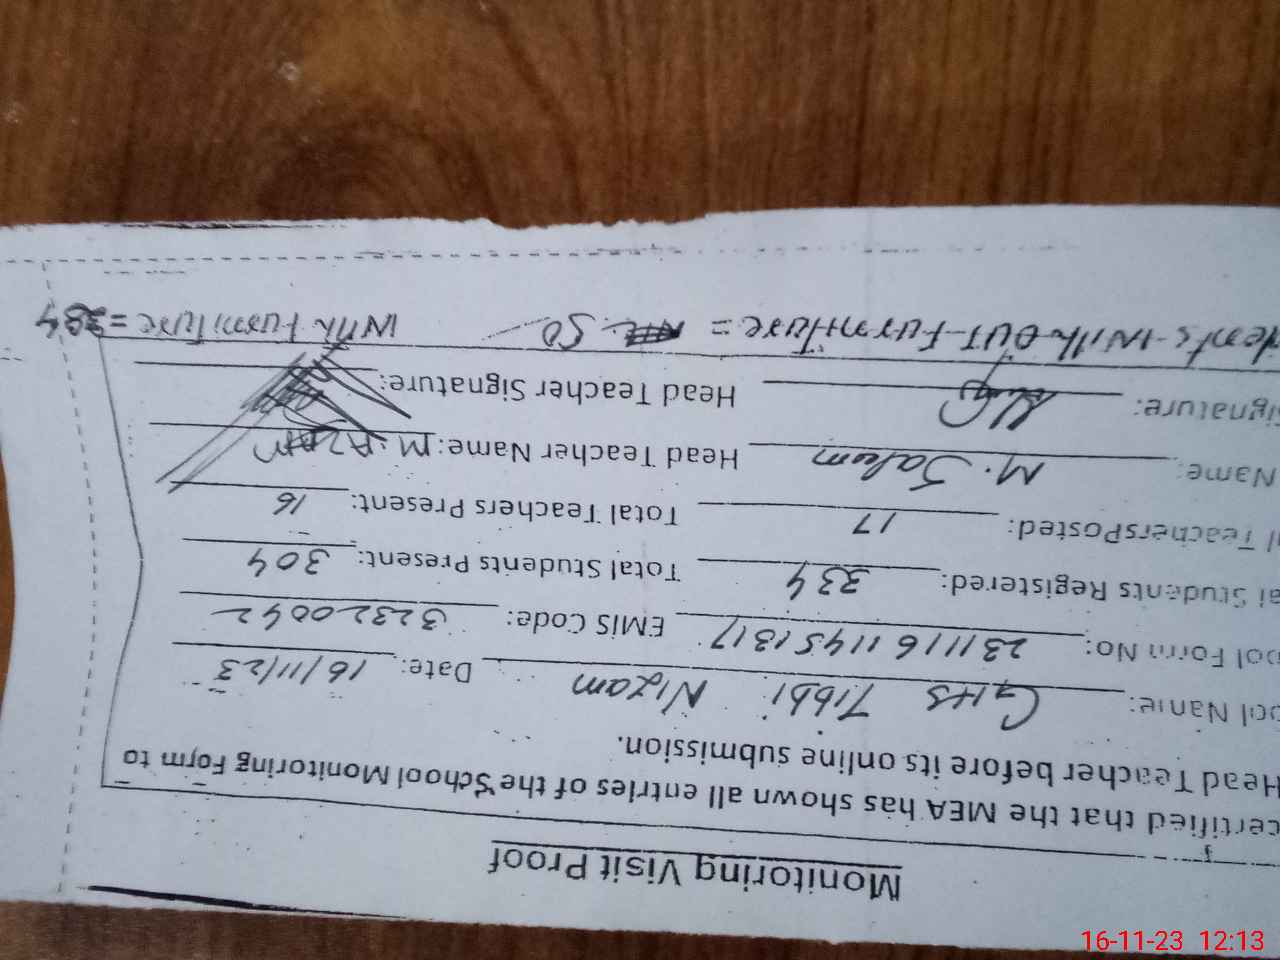 Monitoring Visit Proof
certified that the MEA has shown all entries of the School Monitoring Form to
Head Teacher before its online submission.
ool Name: GHS Tibbi Nizam Date: 16/11/23
ool Form No: 23111611451317 EMIS Code: 32320042
al Students Registered: 334 Total Students Present: 304
l Teachers Posted: 17 Total Teachers Present: 16
Name: M. Salum Head Teacher Name: M. Azam
Signature: Head Teacher Signature:
dents with out Furniture = 50 with Furniture = 384
16-11-23 12:13